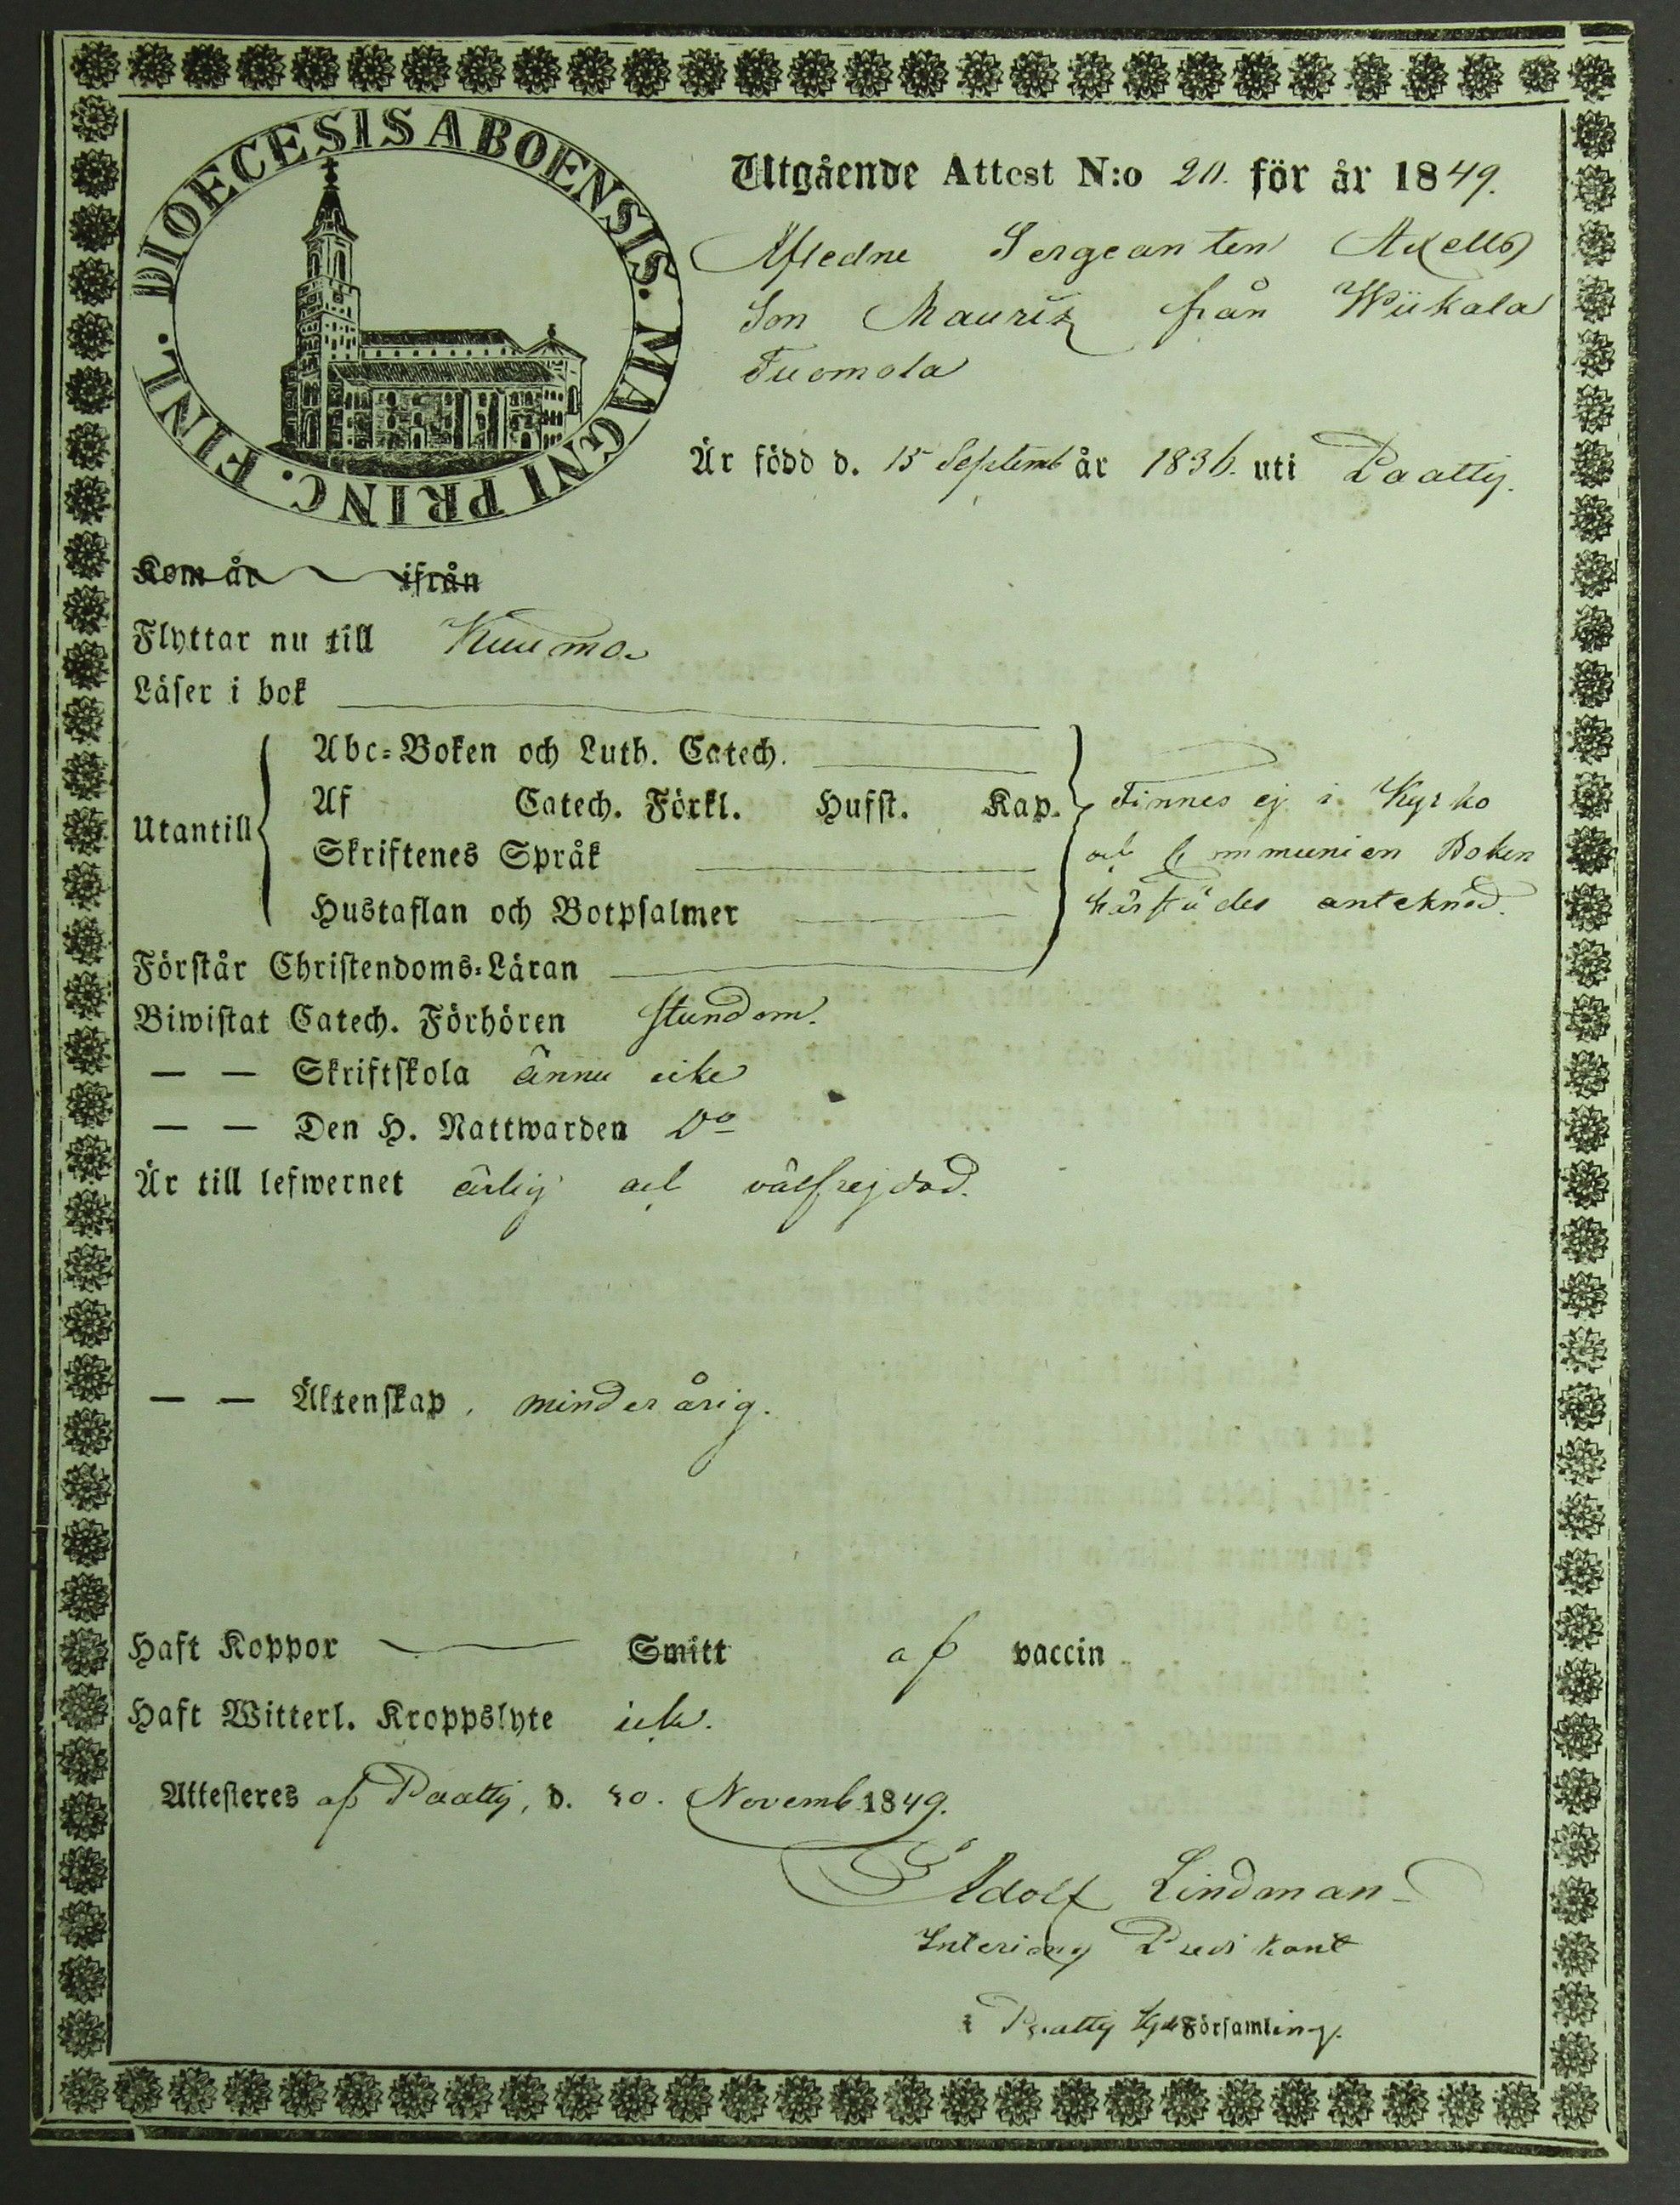 DIOECESIS ABOENSIS. MAGNI PRINC. FINL.
Utgående Attest N:o 20. för år 1849.
Afledne Sergeanten Axells
Son Mauriz från Wiikala
Tuomola
Är född d. 15 Septemb år 1836. uti Paattis.
Kom år ifrån
Flyttar nu till Kuumo.
Läser i bok
Utantill
Abc-Boken och Luth. Catech.
Af Catech. Förkl. Hufst. Kap.
Skriftenes Språk
Hustaflan och Botpsalmer
Finnes ej i Kyrko
och Communion Boken
härstädes anteknad.
Förstår Christendoms-Läran
Biwistat Catech. Förhören stundom.
— — Skriftskola ännu icke
— — Den H. Nattwarden Do
Är till lefwernet ärlig och välfrejdad.
— — Äktenskap, minderårig.
Haft Koppor Smitt af vaccin
Haft Witterl. Kroppslyte icke.
Attesteres af Paattis, d. Novemb. 1849.
Adolf Lindman
Predikant
i Paattis Församling.